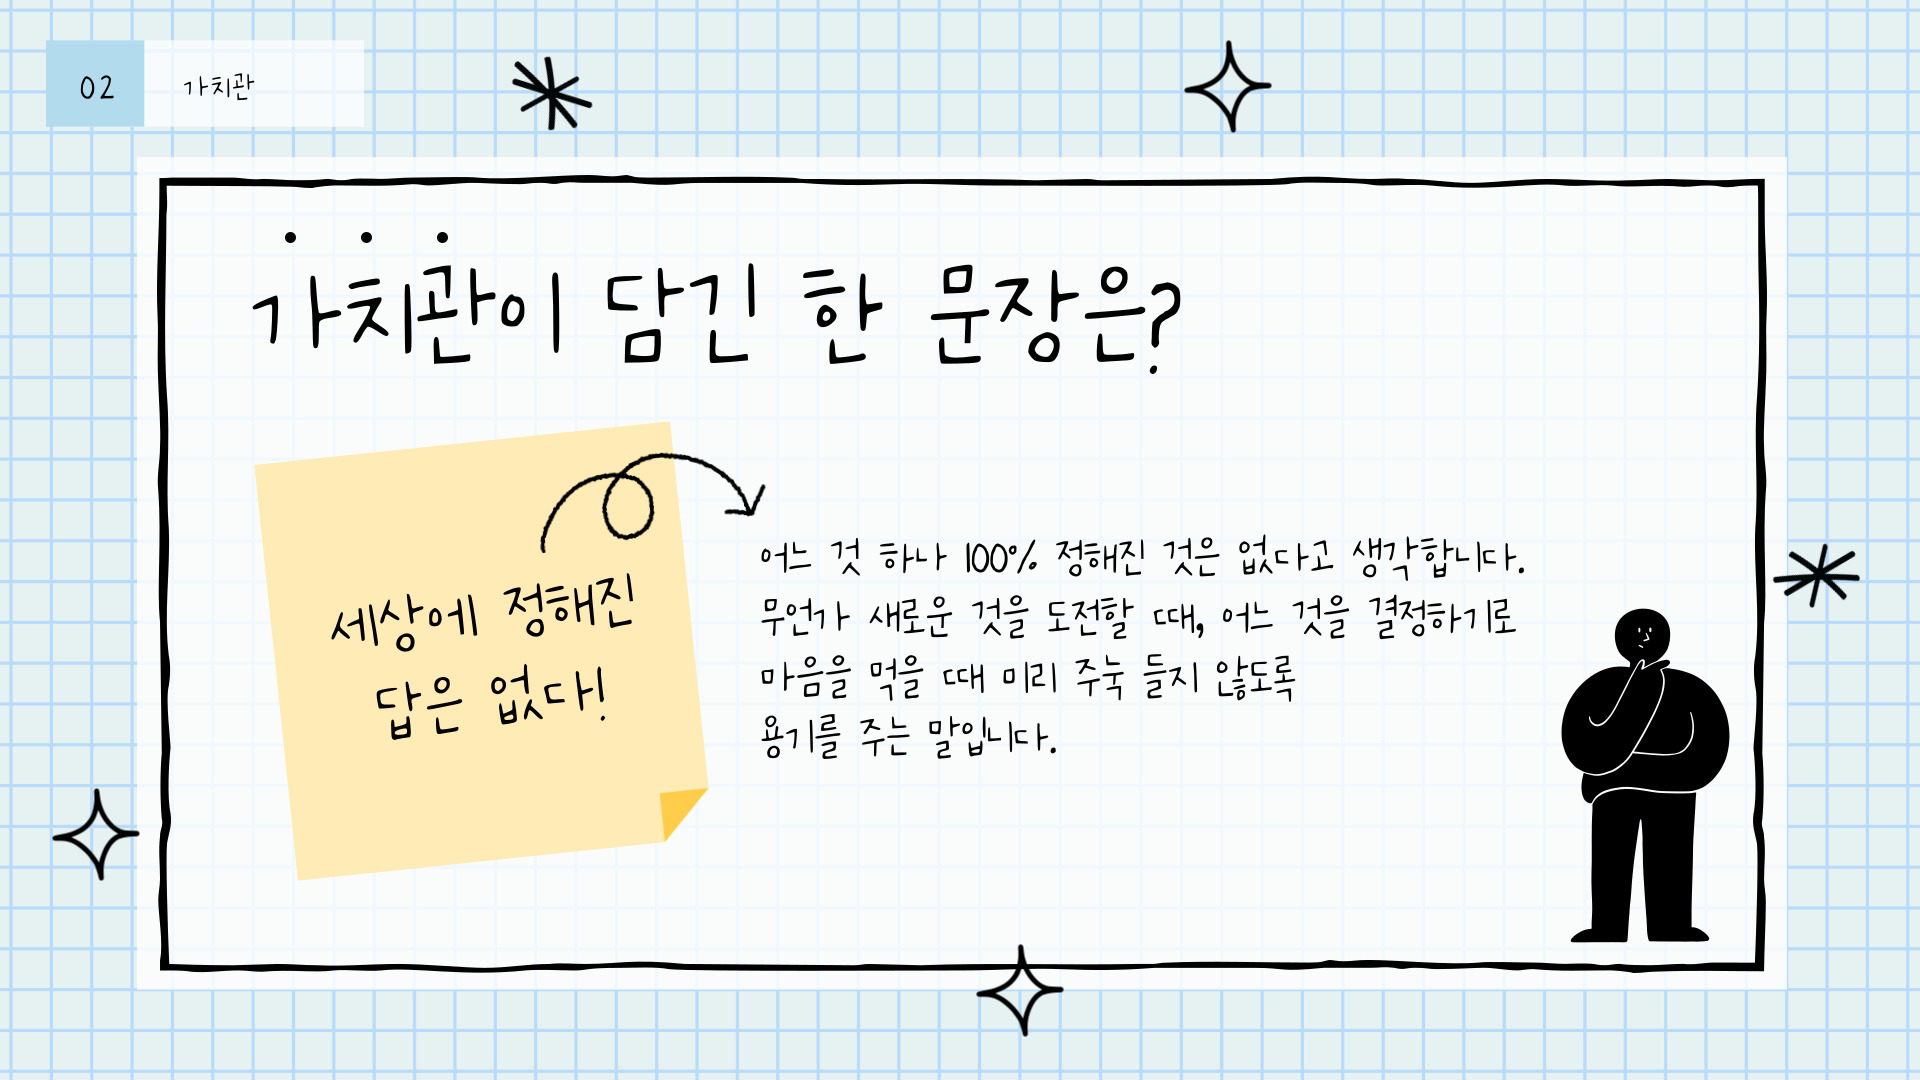 02
가치관
가치관이 담긴 한 문장은?
세상에 정해진
답은 없다!
어느 것 하나 100% 정해진 것은 없다고 생각합니다.
무언가 새로운 것을 도전할 때, 어느 것을 결정하기로
마음을 먹을 때 미리 주눅 들지 않도록
용기를 주는 말입니다.